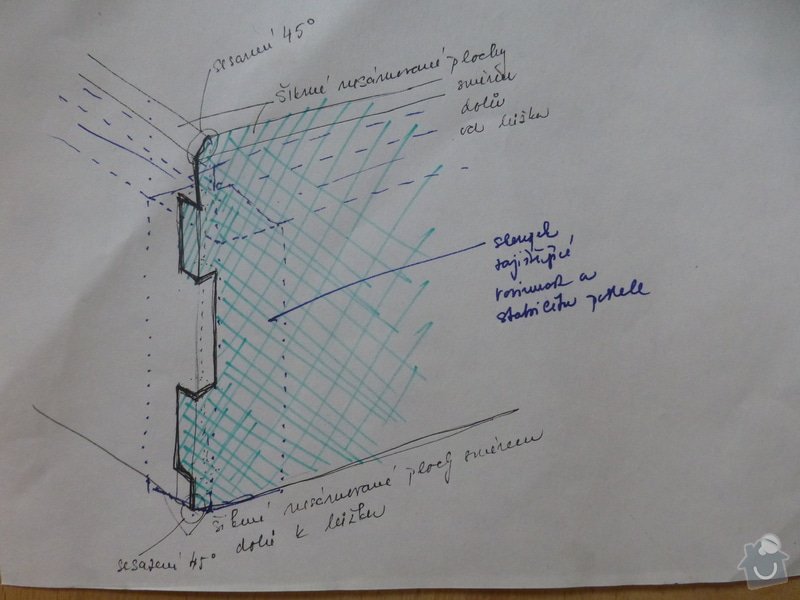 sesazení 45°
šikmé nesámované plochy
směrem
dolů
od lůžka
sloupek
zajišťující
rovinnost a
stabilitu postele
šikmé nesámované plochy směrem
dolů k lůžku
sesazení 45°